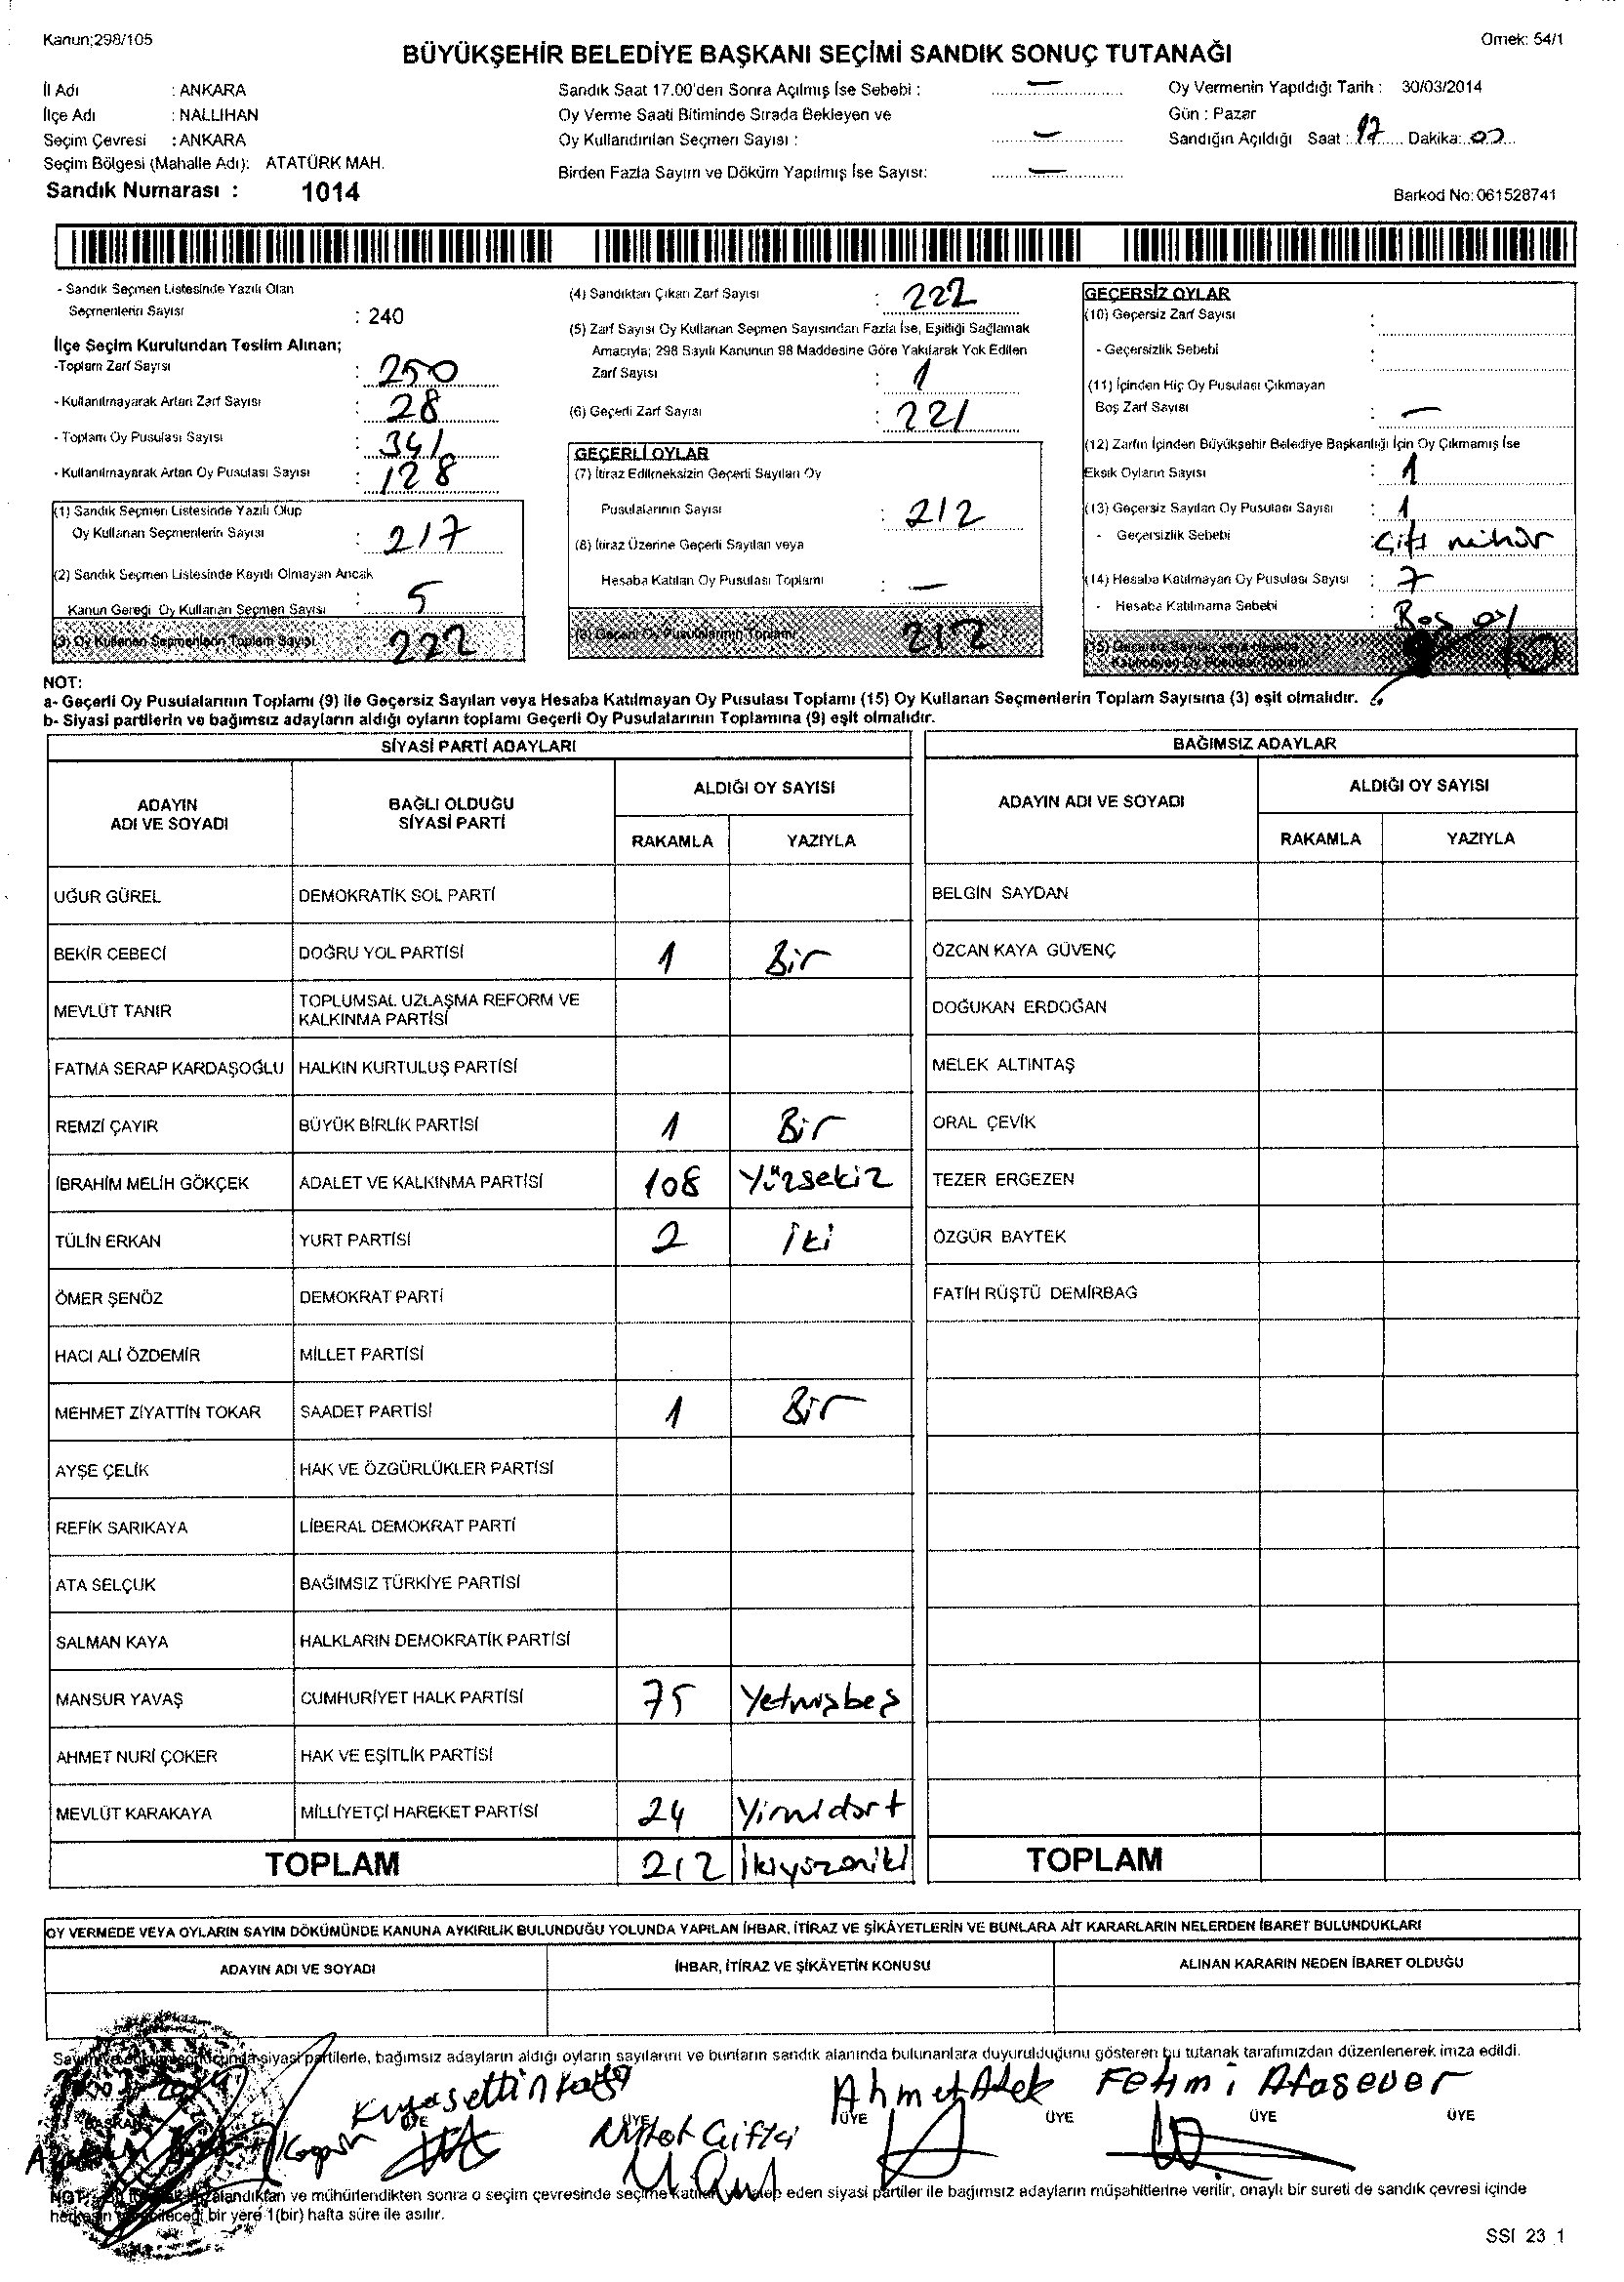 Kanun:298/105
Örnek: 54/1
BÜYÜKŞEHİR BELEDİYE BAŞKANI SEÇİMİ SANDIK SONUÇ TUTANAĞI
İl Adı : ANKARA
İlçe Adı : NALLIHAN
Seçim Çevresi : ANKARA
Seçim Bölgesi (Mahalle Adı): ATATÜRK MAH.
Sandık Numarası : 1014
Sandık Saat 17.00'den Sonra Açılmış İse Sebebi : —
Oy Verme Saati Bitiminde Sırada Bekleyen ve
Oy Kullandırılan Seçmen Sayısı : —
Birden Fazla Sayım ve Döküm Yapılmış İse Sayısı: —
Oy Vermenin Yapıldığı Tarih : 30/03/2014
Gün : Pazar
Sandığın Açıldığı Saat : 17 Dakika: 00
Barkod No:061528741
- Sandık Seçmen Listesinde Yazılı Olan
Seçmenlerin Sayısı : 240
İlçe Seçim Kurulundan Teslim Alınan;
-Toplam Zarf Sayısı : 250
- Kullanılmayarak Artan Zarf Sayısı : 28
- Toplam Oy Pusulası Sayısı : 341
- Kullanılmayarak Artan Oy Pusulası Sayısı : 128
(1) Sandık Seçmen Listesinde Yazılı Olup
Oy Kullanan Seçmenlerin Sayısı : 217
(2) Sandık Seçmen Listesinde Kayıtlı Olmayan Ancak
Kanun Gereği Oy Kullanan Seçmen Sayısı : 5
(3) Oy Kullanan Seçmenlerin Toplam Sayısı 222
(4) Sandıktan Çıkan Zarf Sayısı : 222
(5) Zarf Sayısı Oy Kullanan Seçmen Sayısından Fazla İse, Eşitliği Sağlamak
Amacıyla; 298 Sayılı Kanunun 98 Maddesine Göre Yakılarak Yok Edilen
Zarf Sayısı : 1
(6) Geçerli Zarf Sayısı : 221
GEÇERLİ OYLAR
(7) İtiraz Edilmeksizin Geçerli Sayılan Oy
Pusulalarının Sayısı : 212
(8) İtiraz Üzerine Geçerli Sayılan veya
Hesaba Katılan Oy Pusulası Toplamı : —
(9) Geçerli Oy Pusulalarının Toplamı 212
GEÇERSİZ OYLAR
(10) Geçersiz Zarf Sayısı :
- Geçersizlik Sebebi :
(11) İçinden Hiç Oy Pusulası Çıkmayan
Boş Zarf Sayısı : —
(12) Zarfın İçinden Büyükşehir Belediye Başkanlığı İçin Oy Çıkmamış İse
Eksik Oyların Sayısı : 1
(13) Geçersiz Sayılan Oy Pusulası Sayısı : 1
- Geçersizlik Sebebi : Çift mühür
(14) Hesaba Katılmayan Oy Pusulası Sayısı : 7
- Hesaba Katılmama Sebebi : Boş oy
(15) Geçersiz Sayılan veya Hesaba
Katılmayan Oy Pusulası Toplamı
NOT:
a- Geçerli Oy Pusulalarının Toplamı (9) ile Geçersiz Sayılan veya Hesaba Katılmayan Oy Pusulası Toplamı (15) Oy Kullanan Seçmenlerin Toplam Sayısına (3) eşit olmalıdır.
b- Siyasi partilerin ve bağımsız adayların aldığı oyların toplamı Geçerli Oy Pusulalarının Toplamına (9) eşit olmalıdır.
SİYASİ PARTİ ADAYLARI
ADAYIN ADI VE SOYADI BAĞLI OLDUĞU SİYASİ PARTİ ALDIĞI OY SAYISI
RAKAMLA YAZIYLA
UĞUR GÜREL DEMOKRATİK SOL PARTİ
BEKİR CEBECİ DOĞRU YOL PARTİSİ 1 Bir
MEVLÜT TANIR TOPLUMSAL UZLAŞMA REFORM VE KALKINMA PARTİSİ
FATMA SERAP KARDAŞOĞLU HALKIN KURTULUŞ PARTİSİ
REMZİ ÇAYIR BÜYÜK BİRLİK PARTİSİ 1 Bir
İBRAHİM MELİH GÖKÇEK ADALET VE KALKINMA PARTİSİ 108 Yüzsekiz
TÜLİN ERKAN YURT PARTİSİ 2 İki
ÖMER ŞENÖZ DEMOKRAT PARTİ
HACI ALİ ÖZDEMİR MİLLET PARTİSİ
MEHMET ZİYATTİN TOKAR SAADET PARTİSİ 1 Bir
AYŞE ÇELİK HAK VE ÖZGÜRLÜKLER PARTİSİ
REFİK SARIKAYA LİBERAL DEMOKRAT PARTİ
ATA SELÇUK BAĞIMSIZ TÜRKİYE PARTİSİ
SALMAN KAYA HALKLARIN DEMOKRATİK PARTİSİ
MANSUR YAVAŞ CUMHURİYET HALK PARTİSİ 75 Yetmişbeş
AHMET NURİ ÇOKER HAK VE EŞİTLİK PARTİSİ
MEVLÜT KARAKAYA MİLLİYETÇİ HAREKET PARTİSİ 24 Yirmidört
TOPLAM 212 İkiyüzoniki
BAĞIMSIZ ADAYLAR
ADAYIN ADI VE SOYADI ALDIĞI OY SAYISI
RAKAMLA YAZIYLA
BELGİN SAYDAN
ÖZCAN KAYA GÜVENÇ
DOĞUKAN ERDOĞAN
MELEK ALTINTAŞ
ORAL ÇEVİK
TEZER ERGEZEN
ÖZGÜR BAYTEK
FATİH RÜŞTÜ DEMİRBAĞ
TOPLAM
OY VERMEDE VEYA OYLARIN SAYIM DÖKÜMÜNDE KANUNA AYKIRILIK BULUNDUĞU YOLUNDA YAPILAN İHBAR, İTİRAZ VE ŞİKÂYETLERİN VE BUNLARA AİT KARARLARIN NELERDEN İBARET BULUNDUKLARI
ADAYIN ADI VE SOYADI İHBAR, İTİRAZ VE ŞİKÂYETİN KONUSU ALINAN KARARIN NEDEN İBARET OLDUĞU
siyasi partilerle, bağımsız adayların aldığı oyların sayılarını ve bunların sandık alanında bulunanlara duyurulduğunu gösteren bu tutanak tarafımızdan düzenlenerek imza edildi.
Kıyasettin Kaya Ahmet Adek Fehmi Atasever
BAŞKAN ÜYE ÜYE ÜYE ÜYE ÜYE ÜYE
Çiftçi
NOT: ve mühürlendikten sonra o seçim çevresinde seçime katılan ve talep eden siyasi partiler ile bağımsız adayların müşahitlerine verilir, onaylı bir sureti de sandık çevresi içinde
herkesin bir yere 1(bir) hafta süre ile asılır.
SSI 23 1